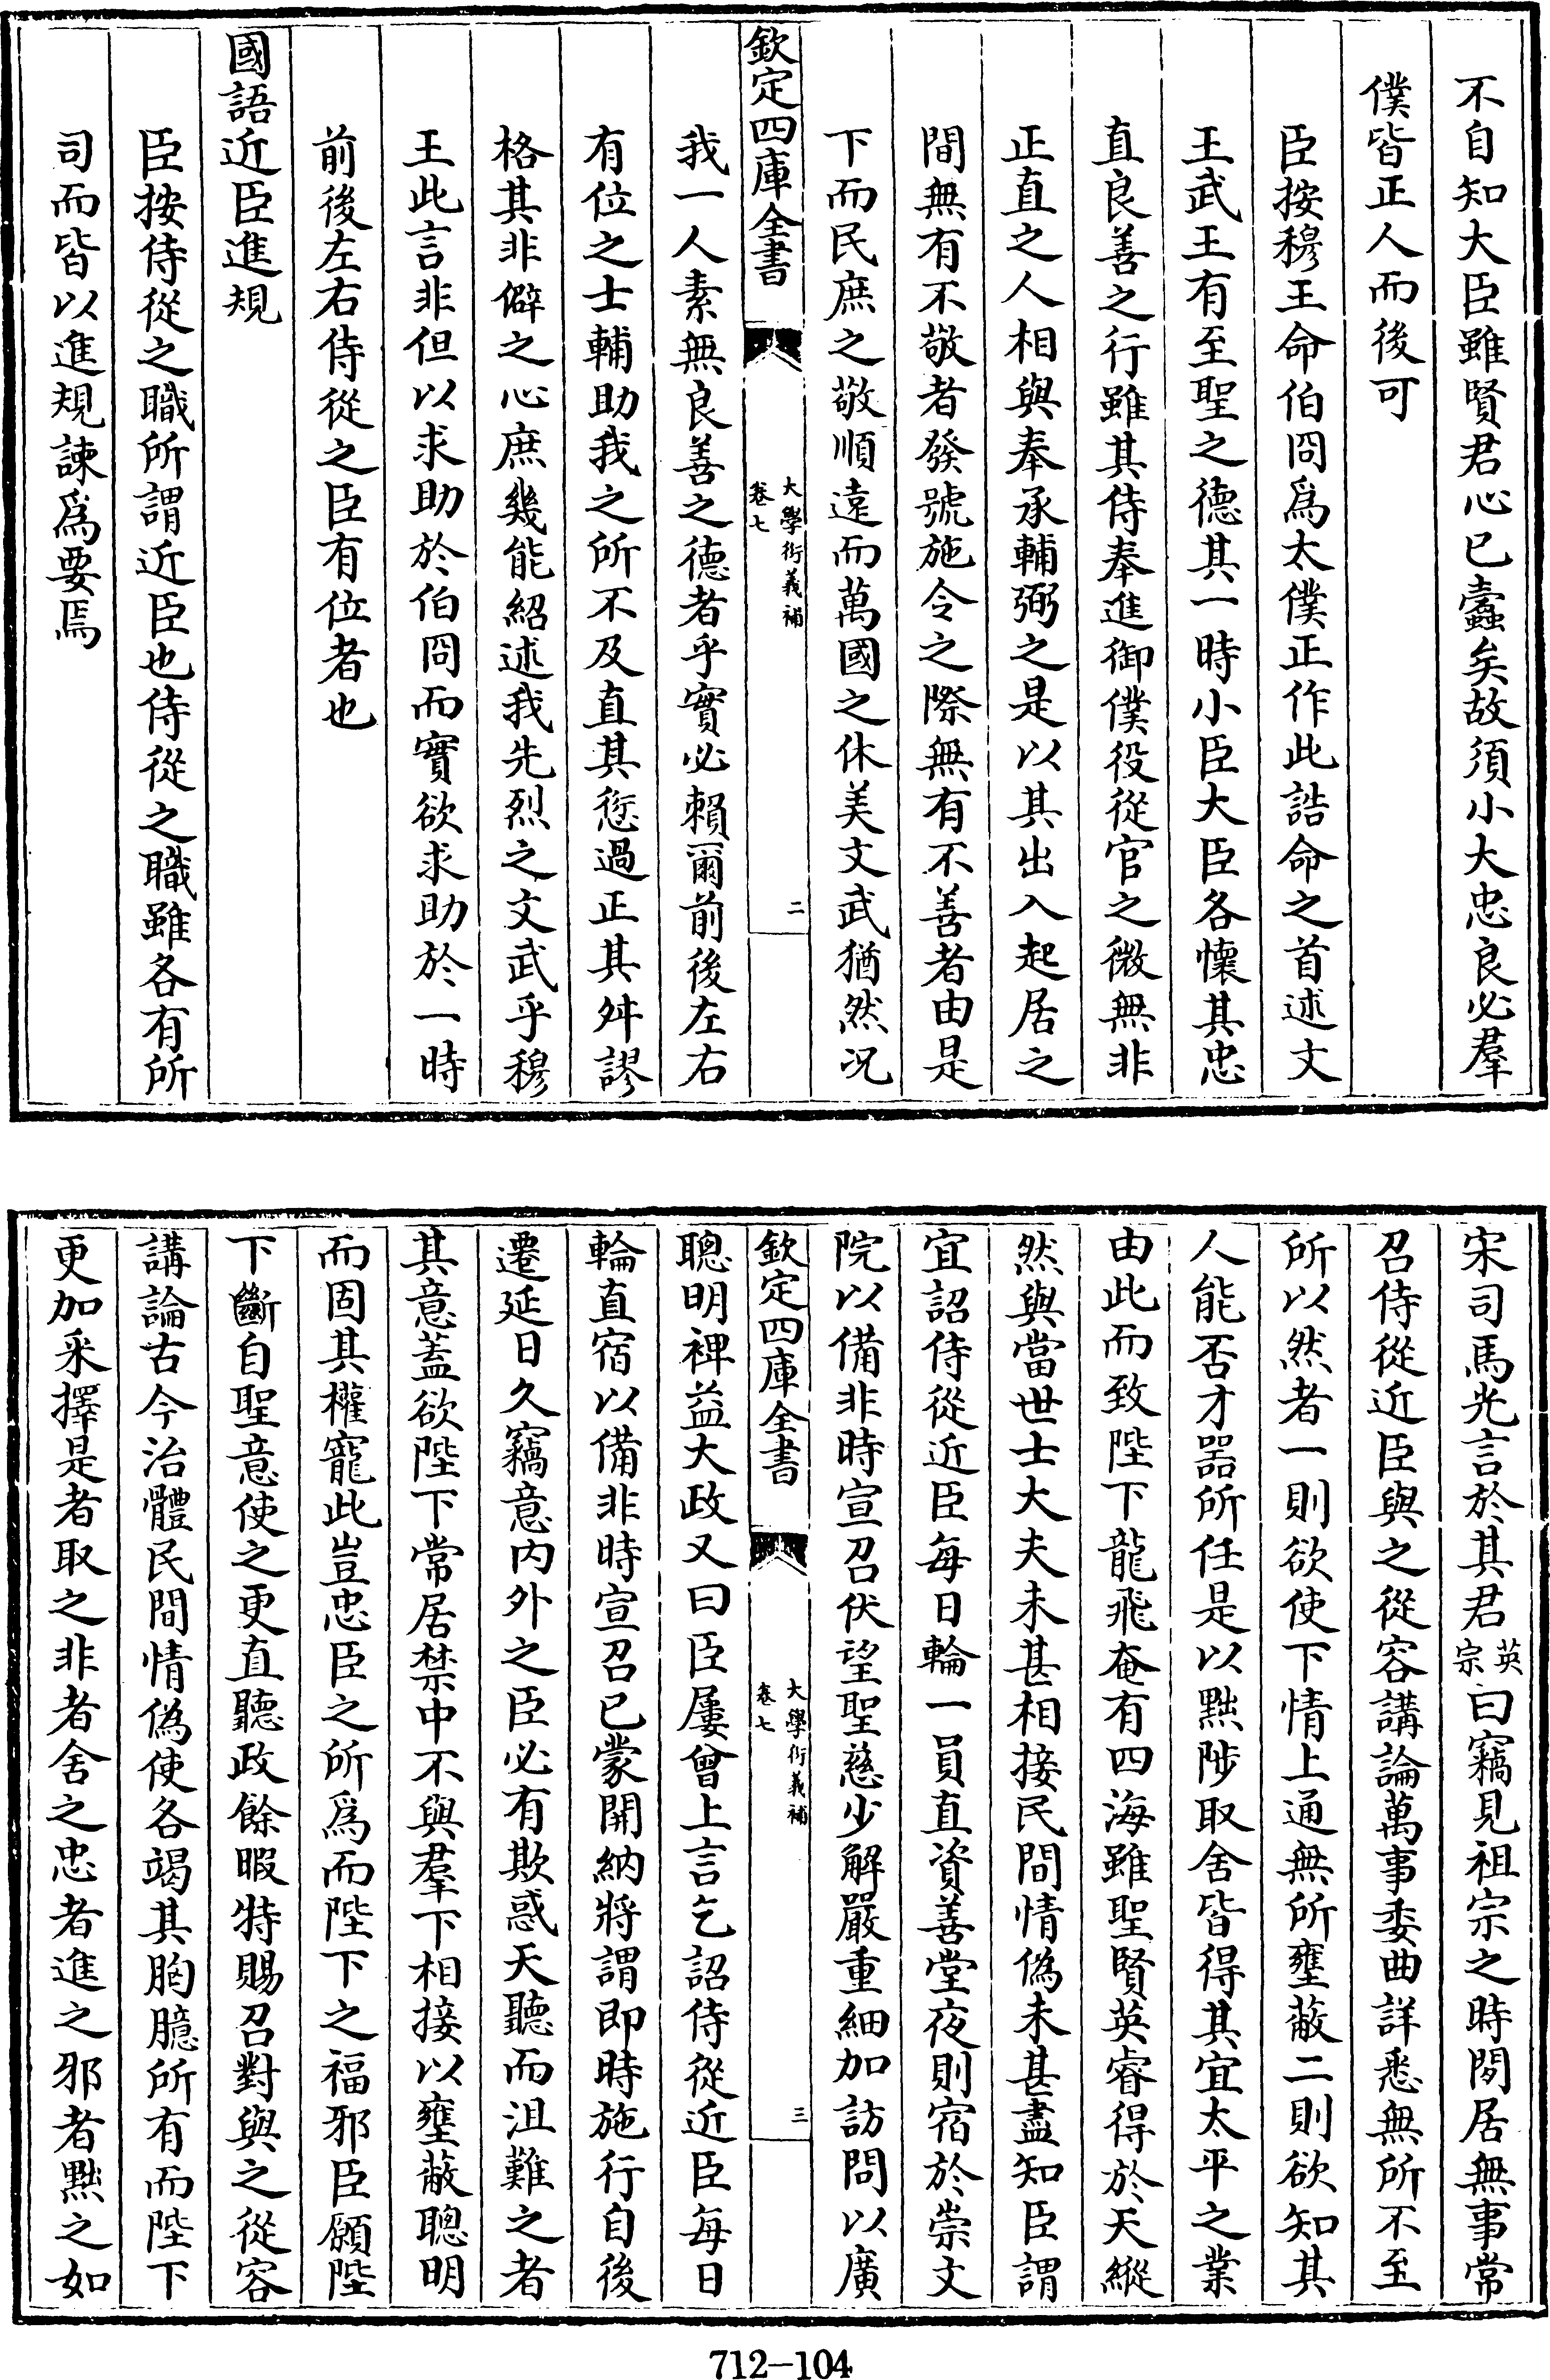 不自知大臣雖賢君心已蠧矣故須小大忠良必羣
僕皆正人而後可
臣按穆王命伯冏爲太僕正作此誥命之首述文
王武王有至聖之德其一時小臣大臣各懷其忠
直良善之行雖其侍奉進御僕役從官之微無非
正直之人相與奉承輔弼之是以其出入起居之
間無有不敬者發號施令之際無有不善者由是
下而民庶之敬順遠而萬國之休美文武猶然况
欽定四庫全書
大學衍義補
卷七
二
我一人素無良善之德者乎實必賴爾前後左右
有位之士輔助我之所不及直其愆過正其舛謬
格其非僻之心庶幾能紹述我先烈之文武乎穆
王此言非但以求助於伯冏而實欲求助於一時
前後左右侍從之臣有位者也
國語近臣進規
臣按侍從之職所謂近臣也侍從之職雖各有所
司而皆以進規諫爲要焉
宋司馬光言於其君英宗曰竊見祖宗之時閒居無事常
召侍從近臣與之從容講論萬事委曲詳悉無所不至
所以然者一則欲使下情上通無所壅蔽二則欲知其
人能否才器所任是以黜陟取舍皆得其宜太平之業
由此而致陛下龍飛奄有四海雖聖賢英睿得於天縱
然與當世士大夫未甚相接民間情偽未甚盡知臣謂
宜詔侍從近臣每日輪一員直資善堂夜則宿於崇文
院以備非時宣召伏望聖慈少解嚴重細加訪問以廣
欽定四庫全書
大學衍義補
卷七
三
聰明裨益大政又曰臣屢曾上言乞詔侍從近臣每日
輪直宿以備非時宣召已蒙開納將謂即時施行自後
遷延日久竊意内外之臣必有欺惑天聽而沮難之者
其意蓋欲陛下常居禁中不與羣下相接以壅蔽聰明
而固其權寵此豈忠臣之所爲而陛下之福邪臣願陛
下斷自聖意使之更直聽政餘暇特賜召對與之從容
講論古今治體民間情偽使各竭其胸臆所有而陛下
更加采擇是者取之非者舍之忠者進之邪者黜之如
712-104